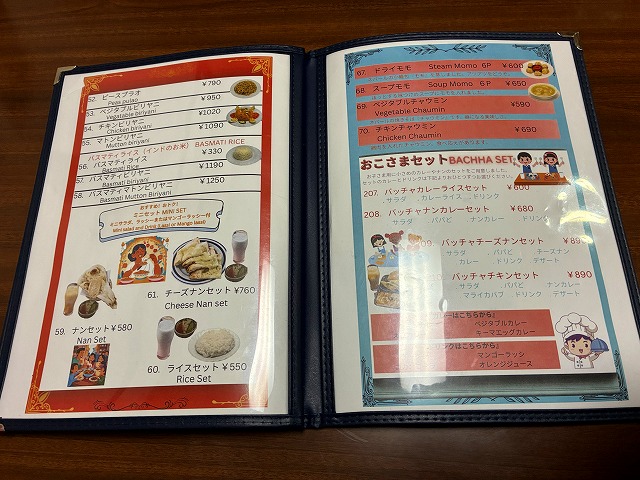 52. ピースプラオ ¥790
Peas pulao
53. ベジタブルビリヤニ ¥950
Vegetable biriyani
54. チキンビリヤニ ¥1020
Chicken biriyani
55. マトンビリヤニ ¥1090
Mutton biriyani
バスマティライス（インドのお米） BASMATI RICE
56. バスマティライス ¥330
Basmati Rice
57. バスマティビリヤニ ¥1190
Basmati biriyani
58. バスマティマトンビリヤニ ¥1250
Basmati Mutton Biriyani
おすすめ！おトク！
ミニセット MINI SET
ミニサラダ、ラッシーまたはマンゴーラッシー付
Mini salad and Drink (Lassi or Mango lassi)
61. チーズナンセット ¥760
Cheese Nan set
59. ナンセット ¥580
Nan Set
60. ライスセット ¥550
Rice Set
67. ドライモモ Steam Momo 6P ¥600
68. スープモモ Soup Momo 6P ¥650
69. ベジタブルチャウミン ¥590
Vegetable Chaumin
70. チキンチャウミン ¥690
Chicken Chaumin
おこさまセット BACHHA SET
お子さま用に小さめのカレーやナンのセットをご用意しました。
セットのカレーとドリンクは下記よりおひとつずつお選びください。
207. バッチャカレーライスセット ¥600
．サラダ ．カレーライス ．ドリンク
208. バッチャナンカレーセット ¥680
．サラダ ．パパド ．ナンカレー ．ドリンク
09 バッチャチーズナンセット ¥89
サラダ ．パパド ．チーズナン
カレー ．ドリンク ．デザート
バッチャチキンセット ¥890
サラダ ．パパド ．ナンカレー
マライカバブ ．ドリンク ．デザート
ーはこちらから』
ベジタブルカレー
キーマエッグカレー
リンクはこちらから』
マンゴーラッシ
オレンジジュース